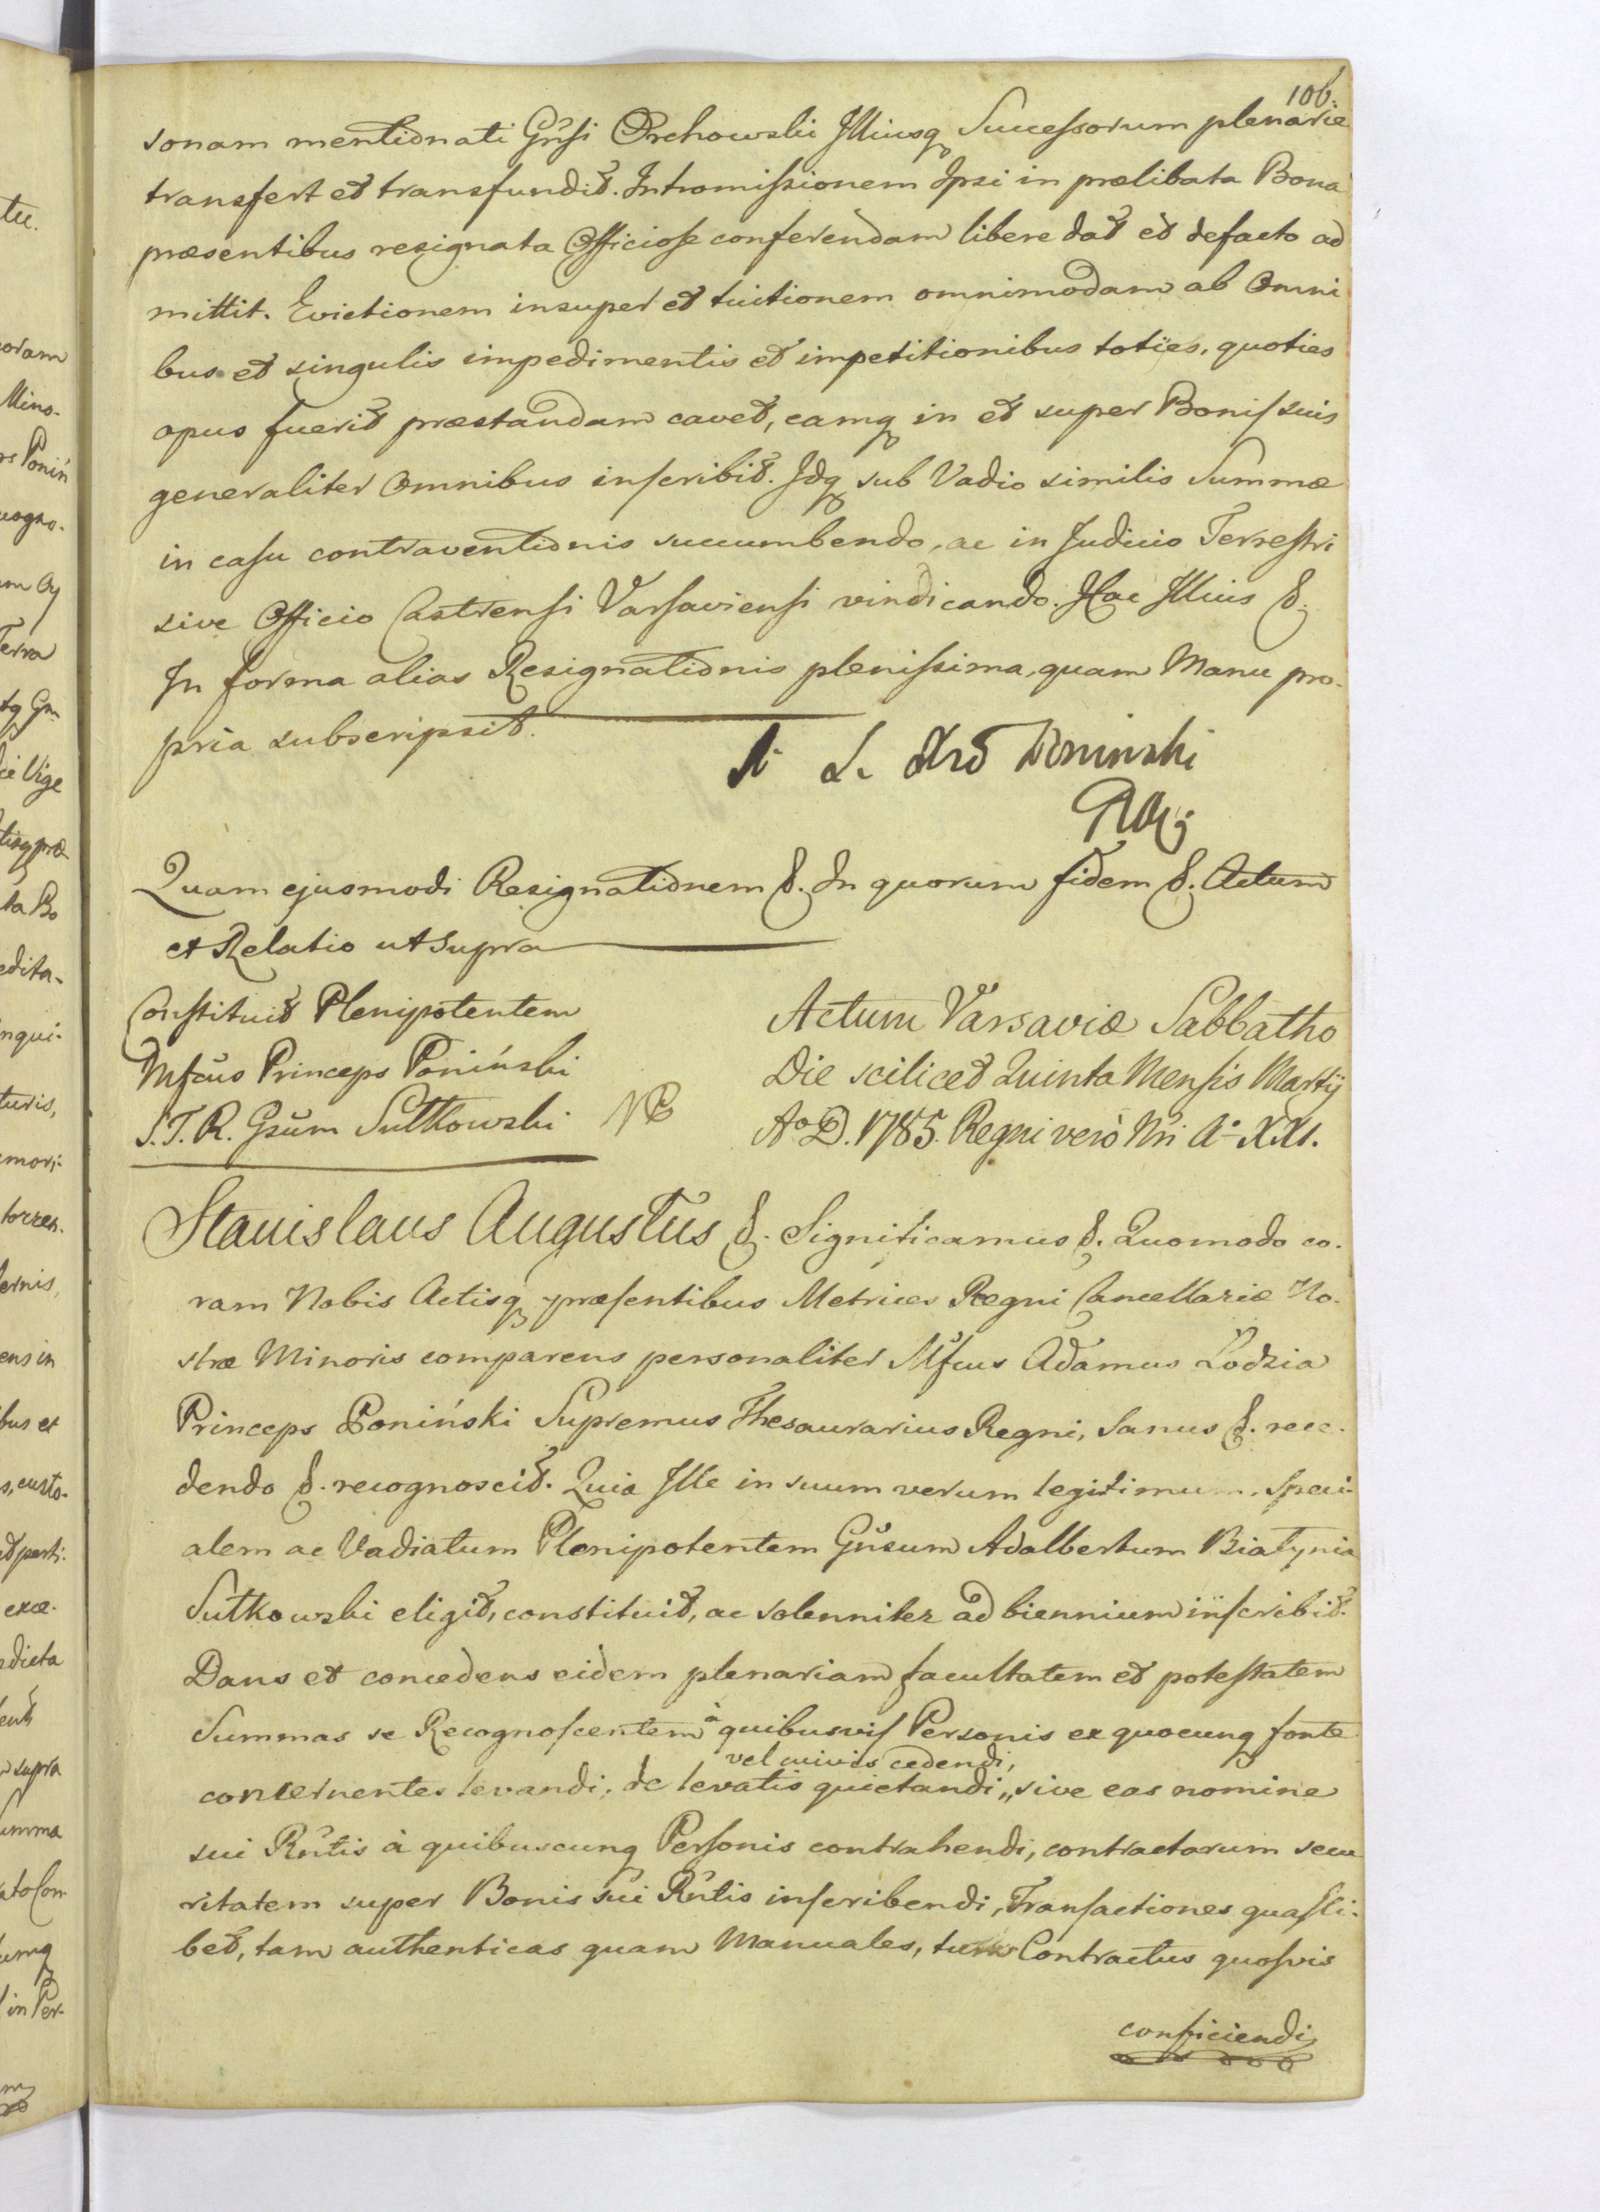 106.
sonam mentionati Gñsi Orchowski Illiusq Successorum plenarie
transfert et transfundit. Intromissionem Ipsi in prælibata Bona
præsentibus resignata Officiose conferendam libere dat et defacto ad
mittit. Evictionem insuper et tuitionem omnimodam ab Omni
bus et singulis impedimentis et impetitionibus toties, quoties
opus fuerit præstandam cavet, eamq in et super Bonis suis
generaliter Omnibus inscribit. Idq sub Vadio similis Summæ
in casu contraventionis succumbendo, ac in Judicio Terrestri
sive Officio Castrensi Varsaviensi vindicando. Hac Illius &.
In forma alias Resignationis plenissima, quam Manu pro-
pria subscripsit.
Poninski
Quam ejusmodi Resignationem &. In quorum fidem &. Actum
et Relatio ut supra
Constituit Plenipotentem
Mfcus Princeps Poniński
S.T.R. Gsum Sutkowski
Actum Varsaviæ Sabbatho
Die scilicet Quinta Mensis Martij
Aº D. 1785. Regni verò Nri Aº XXI.
Stanislaus Augustus &. Significamus &. Quomodo co-
ram Nobis Actisq præsentibus Metrices Regni Cancellariæ No-
stræ Minoris comparens personaliter Mfcus Adamus Lodzia
Princeps Poniński Supremus Thesaurarius Regni, Sanus &. rece-
dendo &. recognoscit. Quia Ille in suum verum legitimum, speci-
alem ac Vadiatum Plenipotentem Gñsum Adalbertum Białynia
Sutkowski eligit, constituit, ac solenniter ad biennium inscribit.
Dans et concedens eidem plenariam facultatem et potestatem
Summas se Recognoscentem à quibusvis Personis ex quocunq fonte
vel cuivis cedendi,
concernentes levandi, de levatis quietandi,, sive eas nomine
sui Rñtis à quibuscunq Personis contrahendi, contractarum secu
ritatem super Bonis sui Rñtis inscribendi, Transactiones quasli-
bet, tam authenticas quam Manuales, tum Contractus quosvis
conficiendi